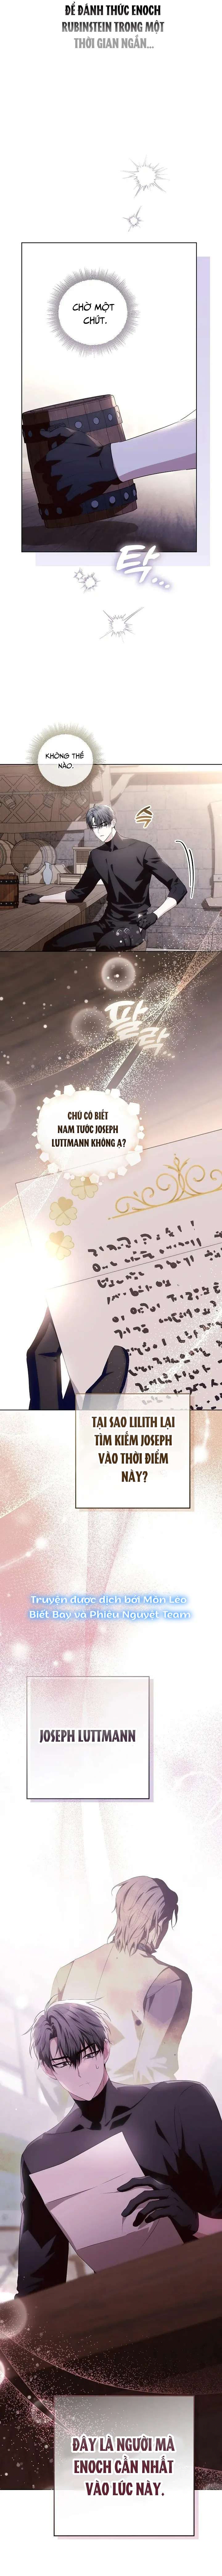 ĐỂ ĐÁNH THỨC ENOCH
RUBINSTEIN TRONG MỘT
THỜI GIAN NGẮN...
CHỜ MỘT
CHÚT.
탁...
KHÔNG THỂ
NÀO.
슥
팔락...
CHÚ CÓ BIẾT
NAM TƯỚC JOSEPH
LUTTMANN KHÔNG Ạ?
TẠI SAO LILITH LẠI
TÌM KIẾM JOSEPH
VÀO THỜI ĐIỂM
NÀY?
Truyện được dịch bởi Mòn Lèo
Biết Bay và Phiêu Nguyệt Team
JOSEPH LUTTMANN
ĐÂY LÀ NGƯỜI MÀ
ENOCH CẦN NHẤT
VÀO LÚC NÀY.